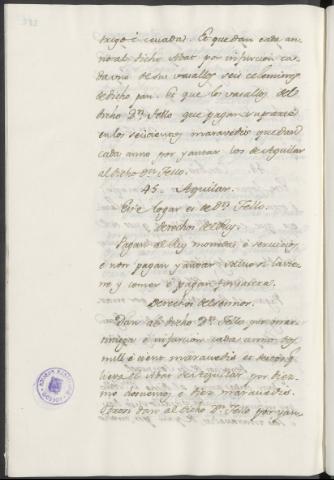 trigo é cevada. E que dan cada an-
no al dicho Abat por infurcion ca-
da uno de sus vasallos seis celemines
de dicho pan. E que los vasallos del
dicho Dn. Tello que pagan su prorata
en los seiscientos maravedis que dan
cada anno por yantar los de Aguilar
al dicho Dn. Tello.
45. Aguilar.
Este logar es de Dn. Tello.
Derechos del Rey.
Pagan al Rey monedas é servicios
é non pagan yantar salvo si la vie-
ne y comer é pagan fonsadera.
Derechos del sennor.
Dan al dicho Dn. Tello por mar-
tiniega é infurcion cada anno dos
mill é ciento maravedis é
lieva el Abat de Aguilar por diez-
mo doscientos é diez maravedis.
Otrosi dan al dicho Dn. Tello por yan-